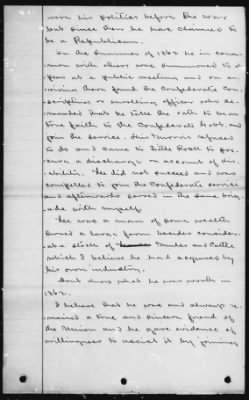 were his politics before the war
but since then he has claimed to
be a Republican.
In the Summer of 1862 he in com
mon with others was summoned to ap
pear at a public meeting and on ar
riving there found the Confederate Con
scription or enrolling officer who de
manded that he take the oath to be in
true faith to the Confederacy &
join the service. Morris refused
to do and came to Little Rock to pro
cure a discharge on account of dis
ability. He did not succeed and was
compelled to join the Confederate service
and afterwards served in the same brig
ade with myself.
He was a man of some wealth
owned a large farm besides consider
able stock of Mules and Cattle
which I believe he had acquired by
his own industry.
Dont know what he was worth in
1862.
I believe that he was and always re
mained a true and sincere friend of
the Union and he gave evidence of
willingness to assist it by joining